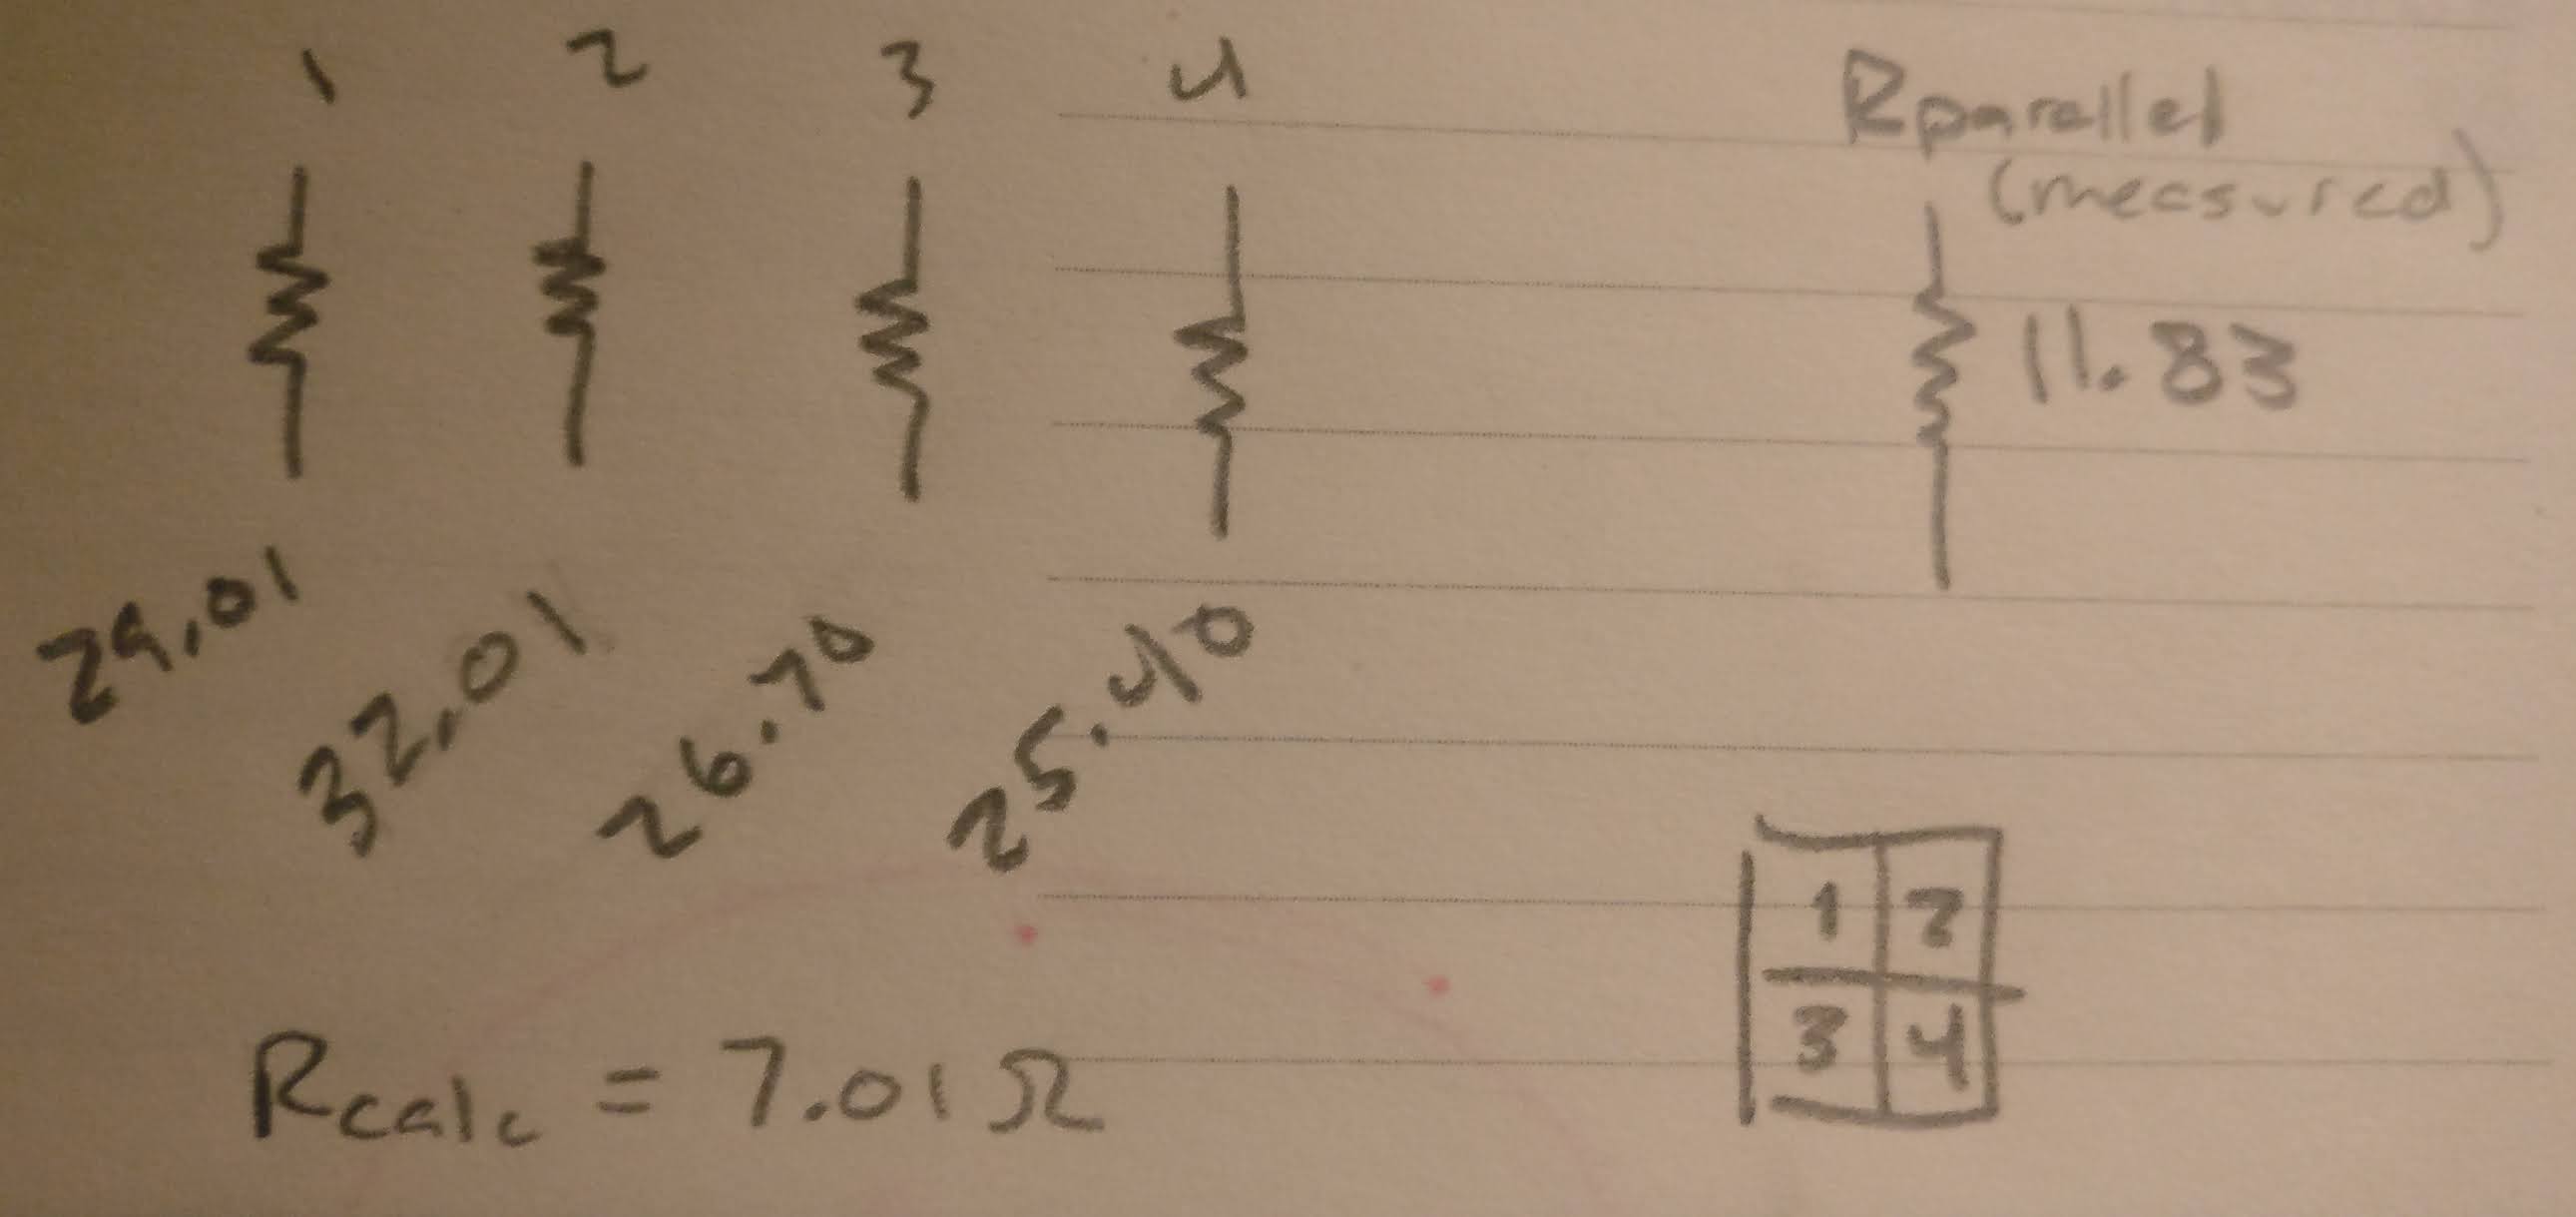 1 2 3 4
Rparallel
(measured)
11.83
29.01 32.01 26.70 25.40
1 2
3 4
Rcalc = 7.01Ω